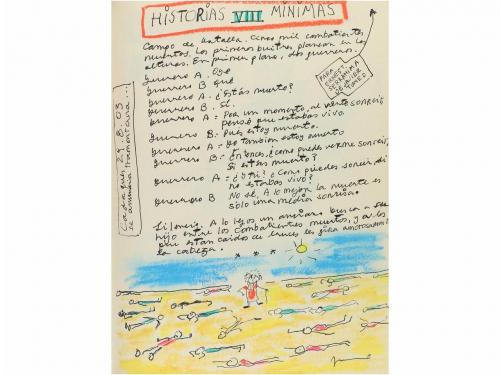 HISTORIAS VIII MINIMAS
Campo de batalla. Cinco mil combatientes
muertos. Los primeros buitres planean en las
alturas. En primer plano, dos guerreros.
Guerrero A. Oye
Guerrero B Qué
Guerrero A = ¿Estás muerto?
Guerrero B. Sí.
Guerrero A = Por un momento, al verte sonreír,
pensé que estabas vivo.
Guerrero B = Pues estoy muerto.
Guerrero A = Yo también estoy muerto
Guerrero B = Entonces, ¿cómo puedes verme sonreír,
si estás muerto?
Guerrero A = ¿Y tú? ¿Cómo puedes sonreír si
no estabas vivo?
Guerrero B No sé. A lo mejor la muerte es
sólo una media sonrisa.
Silencio. A lo lejos un anciano busca a su
hijo entre los combatientes muertos, y a los
que están caídos de bruces les gira amorosamente
la cabeza.
* * *
PARA
ERNEST
SERRAHIMA
DE JAVIER
TOMEO
Cadaqués, 29.8.03
se anuncia tramontana...